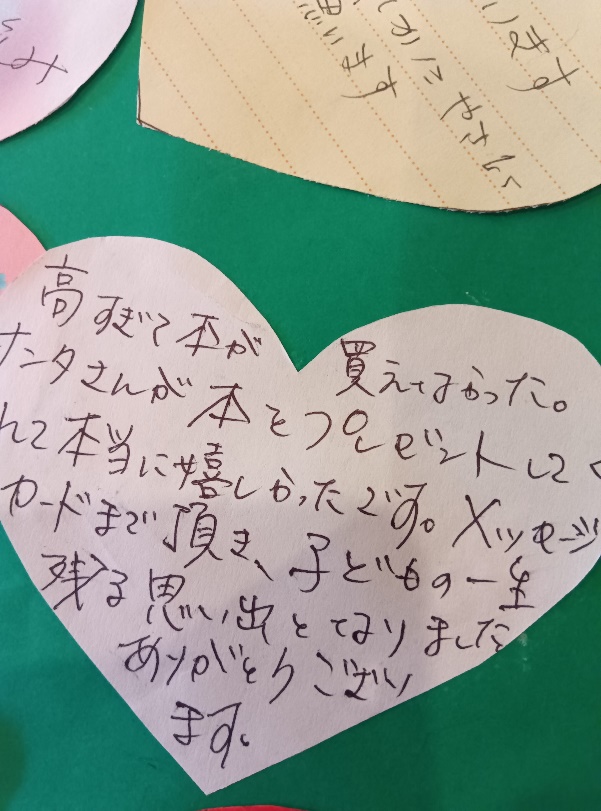 み
います
思います
やさしく
高すぎて本が
買えなかった。
サンタさんが本をプレゼントして
れて本当に嬉しかったです。メッセージ
カードまで頂き、子どもの一生
残る思い出となりました
ありがとうござい
ます。